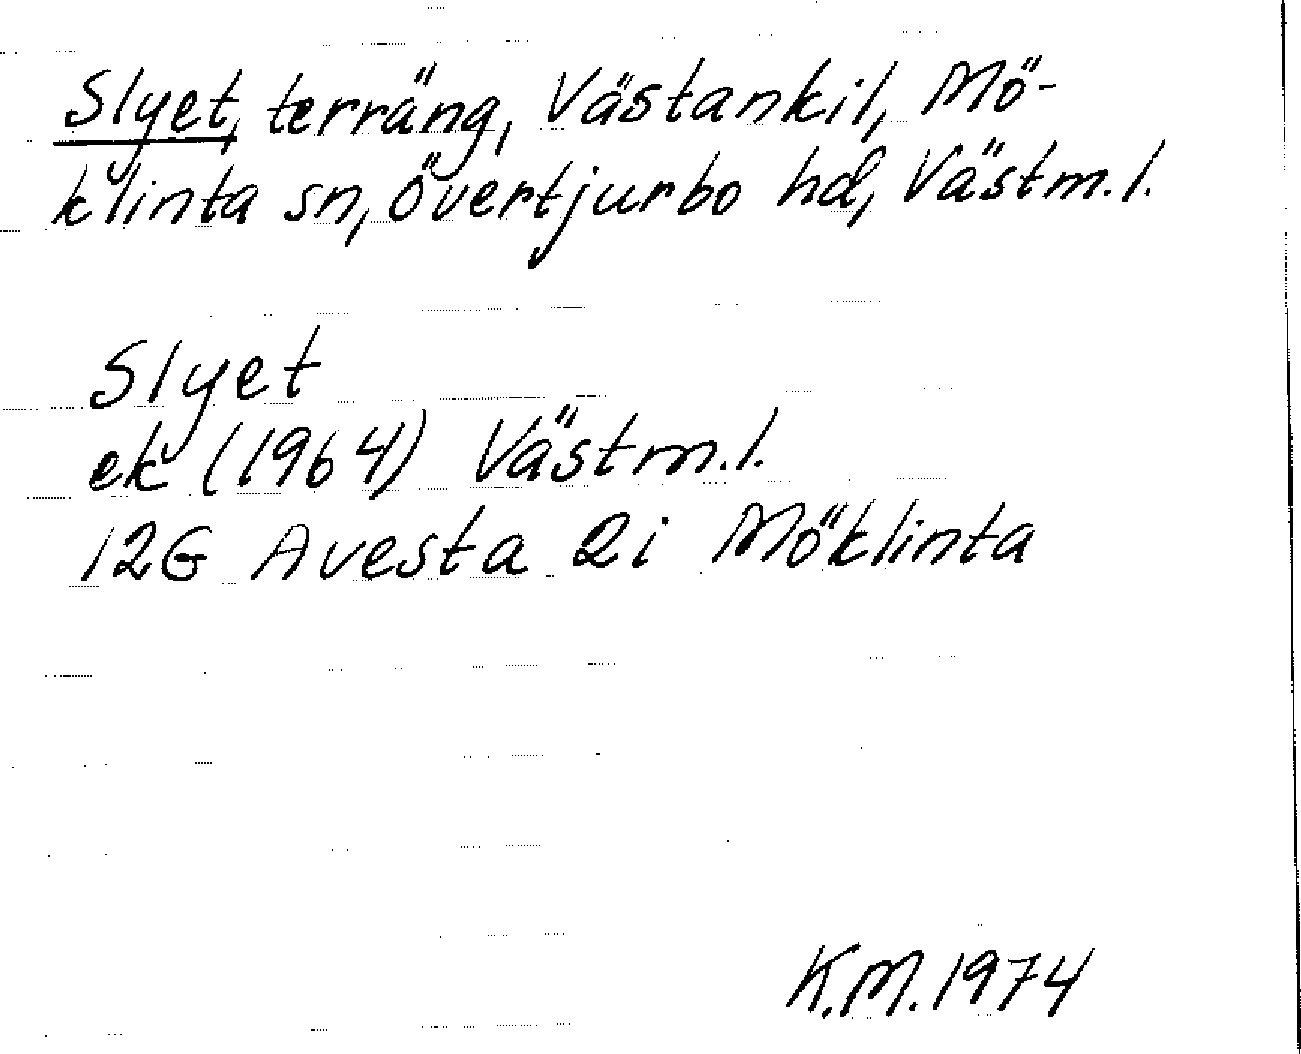 Slyet, terräng, Västankil, Mö-
klinta sn, Övertjurbo hd, Västm.l.
Slyet
ek (1964) Västm.l.
12G Avesta 2i Möklinta
K.M. 1974